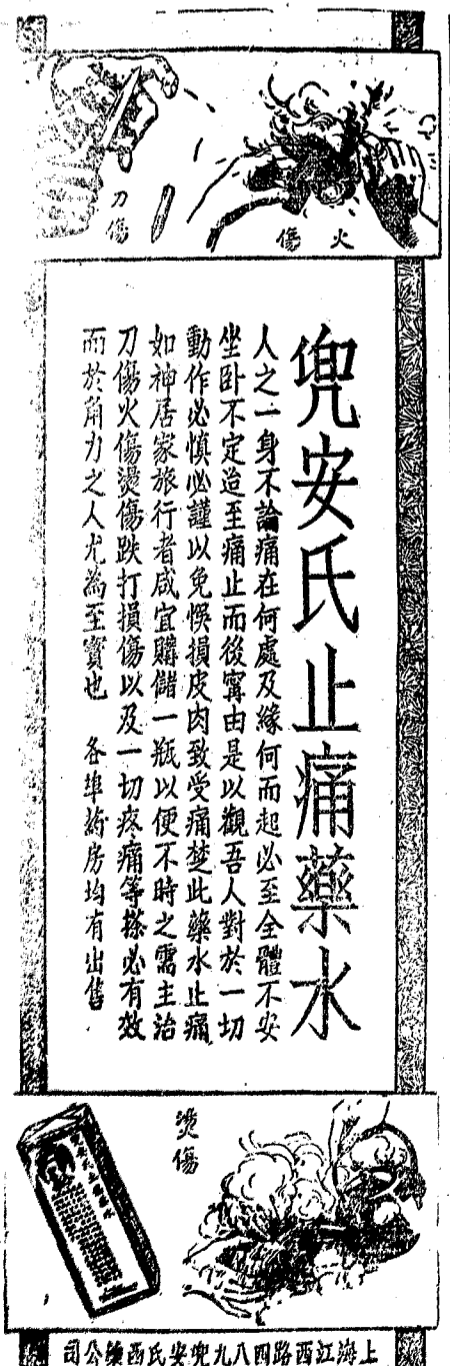 火傷
刀傷
兜安氏止痛藥水
人之一身不論痛在何處及緣何而起必至全體不安
坐卧不定迨至痛止而後寗由是以觀吾人對於一切
動作必慎必謹以免悞損皮肉致受痛楚此藥水止痛
如神居家旅行者咸宜購儲一瓶以便不時之需主治
刀傷火傷燙傷跌打損傷以及一切疼痛等搽必有效
而於角力之人尤為至寳也 各埠葯房均有出售
燙傷
上海江西路四八九兜安氏西藥公司